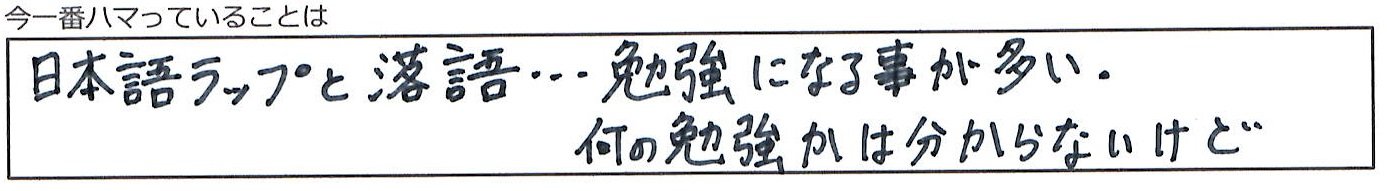 今一番ハマっていることは
日本語ラップと落語…勉強になる事が多い.
何の勉強かは分からないけど